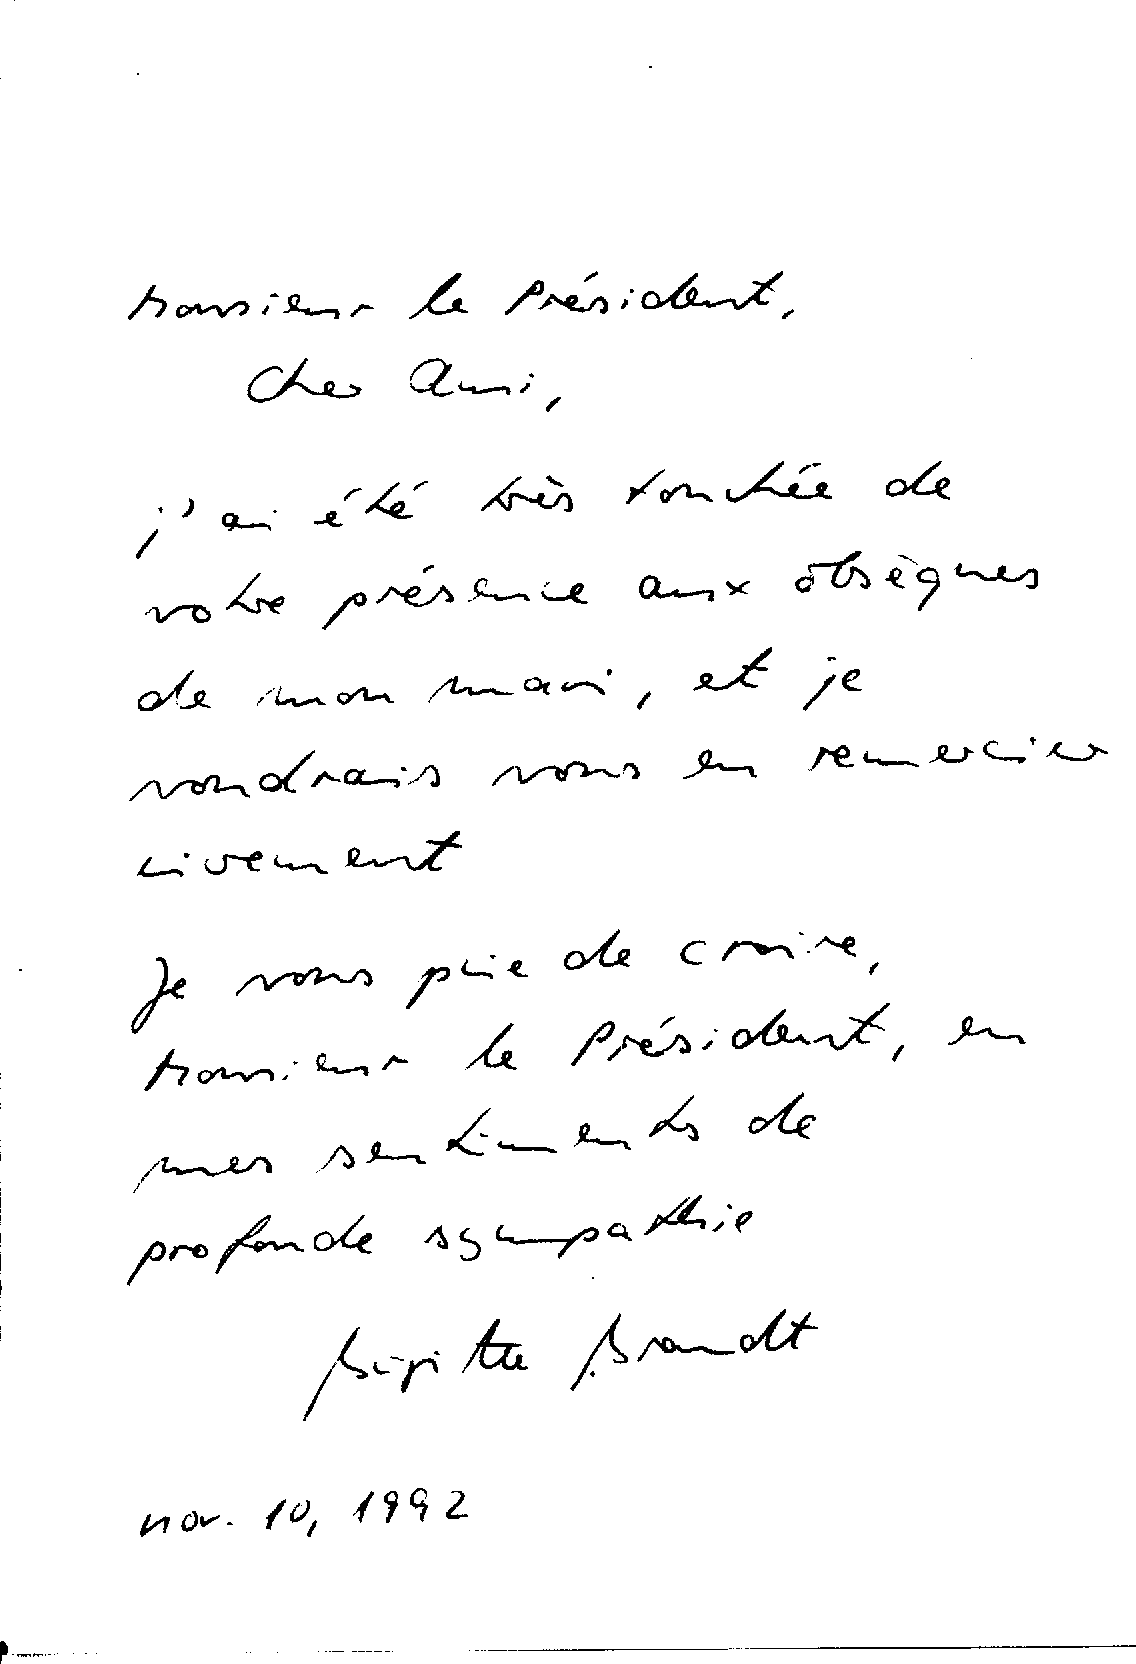 Monsieur le Président,
Cher Ami,
j'ai été très touchée de
votre présence aux obsèques
de mon mari, et je
voudrais vous en remercier
vivement
Je vous prie de croire,
Monsieur le Président, en
mes sentiments de
profonde sympathie
Brigitte Brandt
nov. 10, 1992